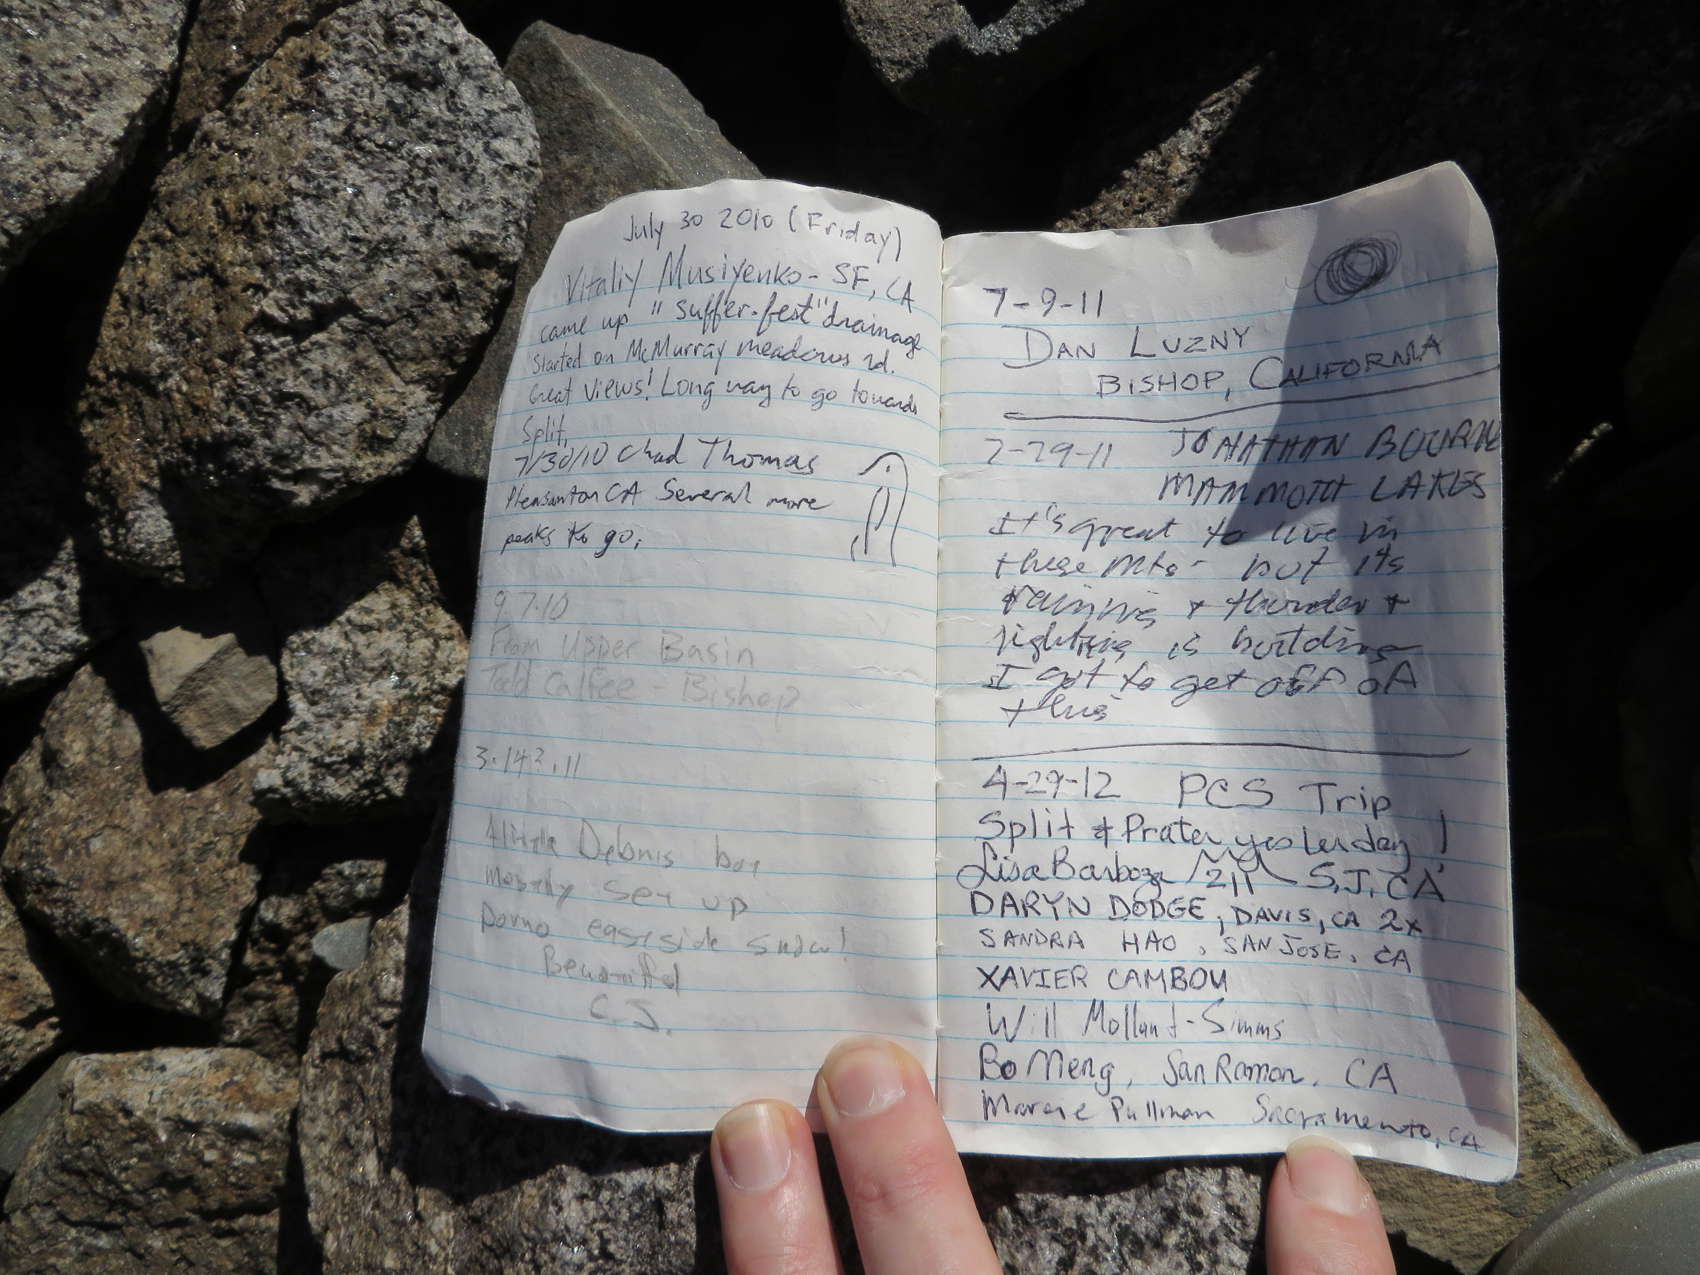 July 30 2010 (Friday)
Vitaliy Musiyenko - SF, CA
came up "suffer-fest" drainage
Started on McMurray meadows rd.
Great Views! Long way to go towards
Split.
7/30/10 Chad Thomas
Pleasanton CA Several more
peaks to go.
9.7.10
From Upper Basin
Todd Calfee - Bishop
3.14².11
A little Debris but
Mostly set up
porno eastside snow!
Beautiful
C. J.
7-9-11
DAN LUZNY
BISHOP, CALIFORNIA
7-29-11 JONATHAN BOURNE
MAMMOTH LAKES
It's great to live in
these Mts - but its
raining + thunder +
lightning is building
I got to get off of
this
4-29-12 PCS Trip
Split & Prater yesterday!
Lisa Barboza 211 S.J., CA
DARYN DODGE, DAVIS, CA 2x
SANDRA HAO, SAN JOSE, CA
XAVIER CAMBOU
Will Mollant-Simms
Bo Meng, San Ramon, CA
Marcie Pullman Sacramento, CA